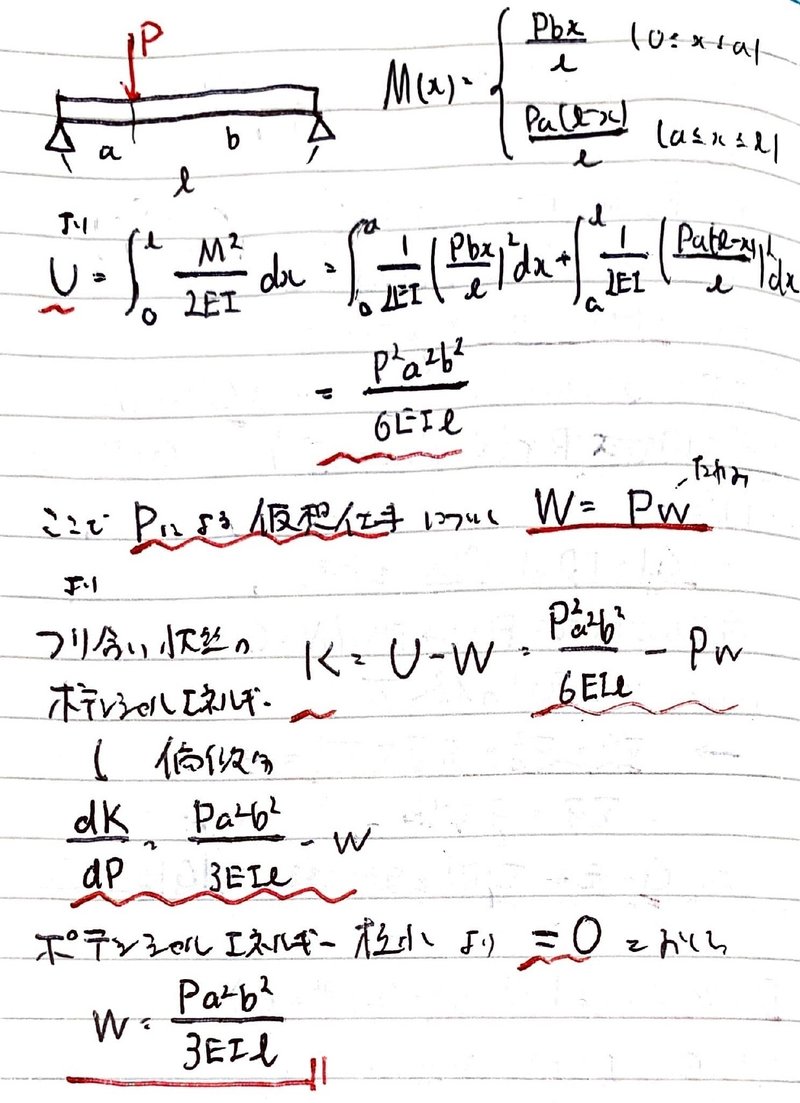 P
a b
l
M(x) = { Pbx/l (0 ≤ x < a)
Pa(l-x)/l (a ≤ x ≤ l)
より
U = ∫₀ˡ M²/2EI dx = ∫₀ᵃ 1/2EI (Pbx/l)² dx + ∫ₐˡ 1/2EI (Pa(l-x)/l)² dx
= P²a²b²/6EIl
たわみ
ここで Pによる仮想仕事について W = Pw
より
つり合い状態の
ポテンシャルエネルギー K = U - W = P²a²b²/6EIl - Pw
偏微分
dK/dP = Pa²b²/3EIl - w
ポテンシャルエネルギー極小より = 0 とおくと
w = Pa²b²/3EIl